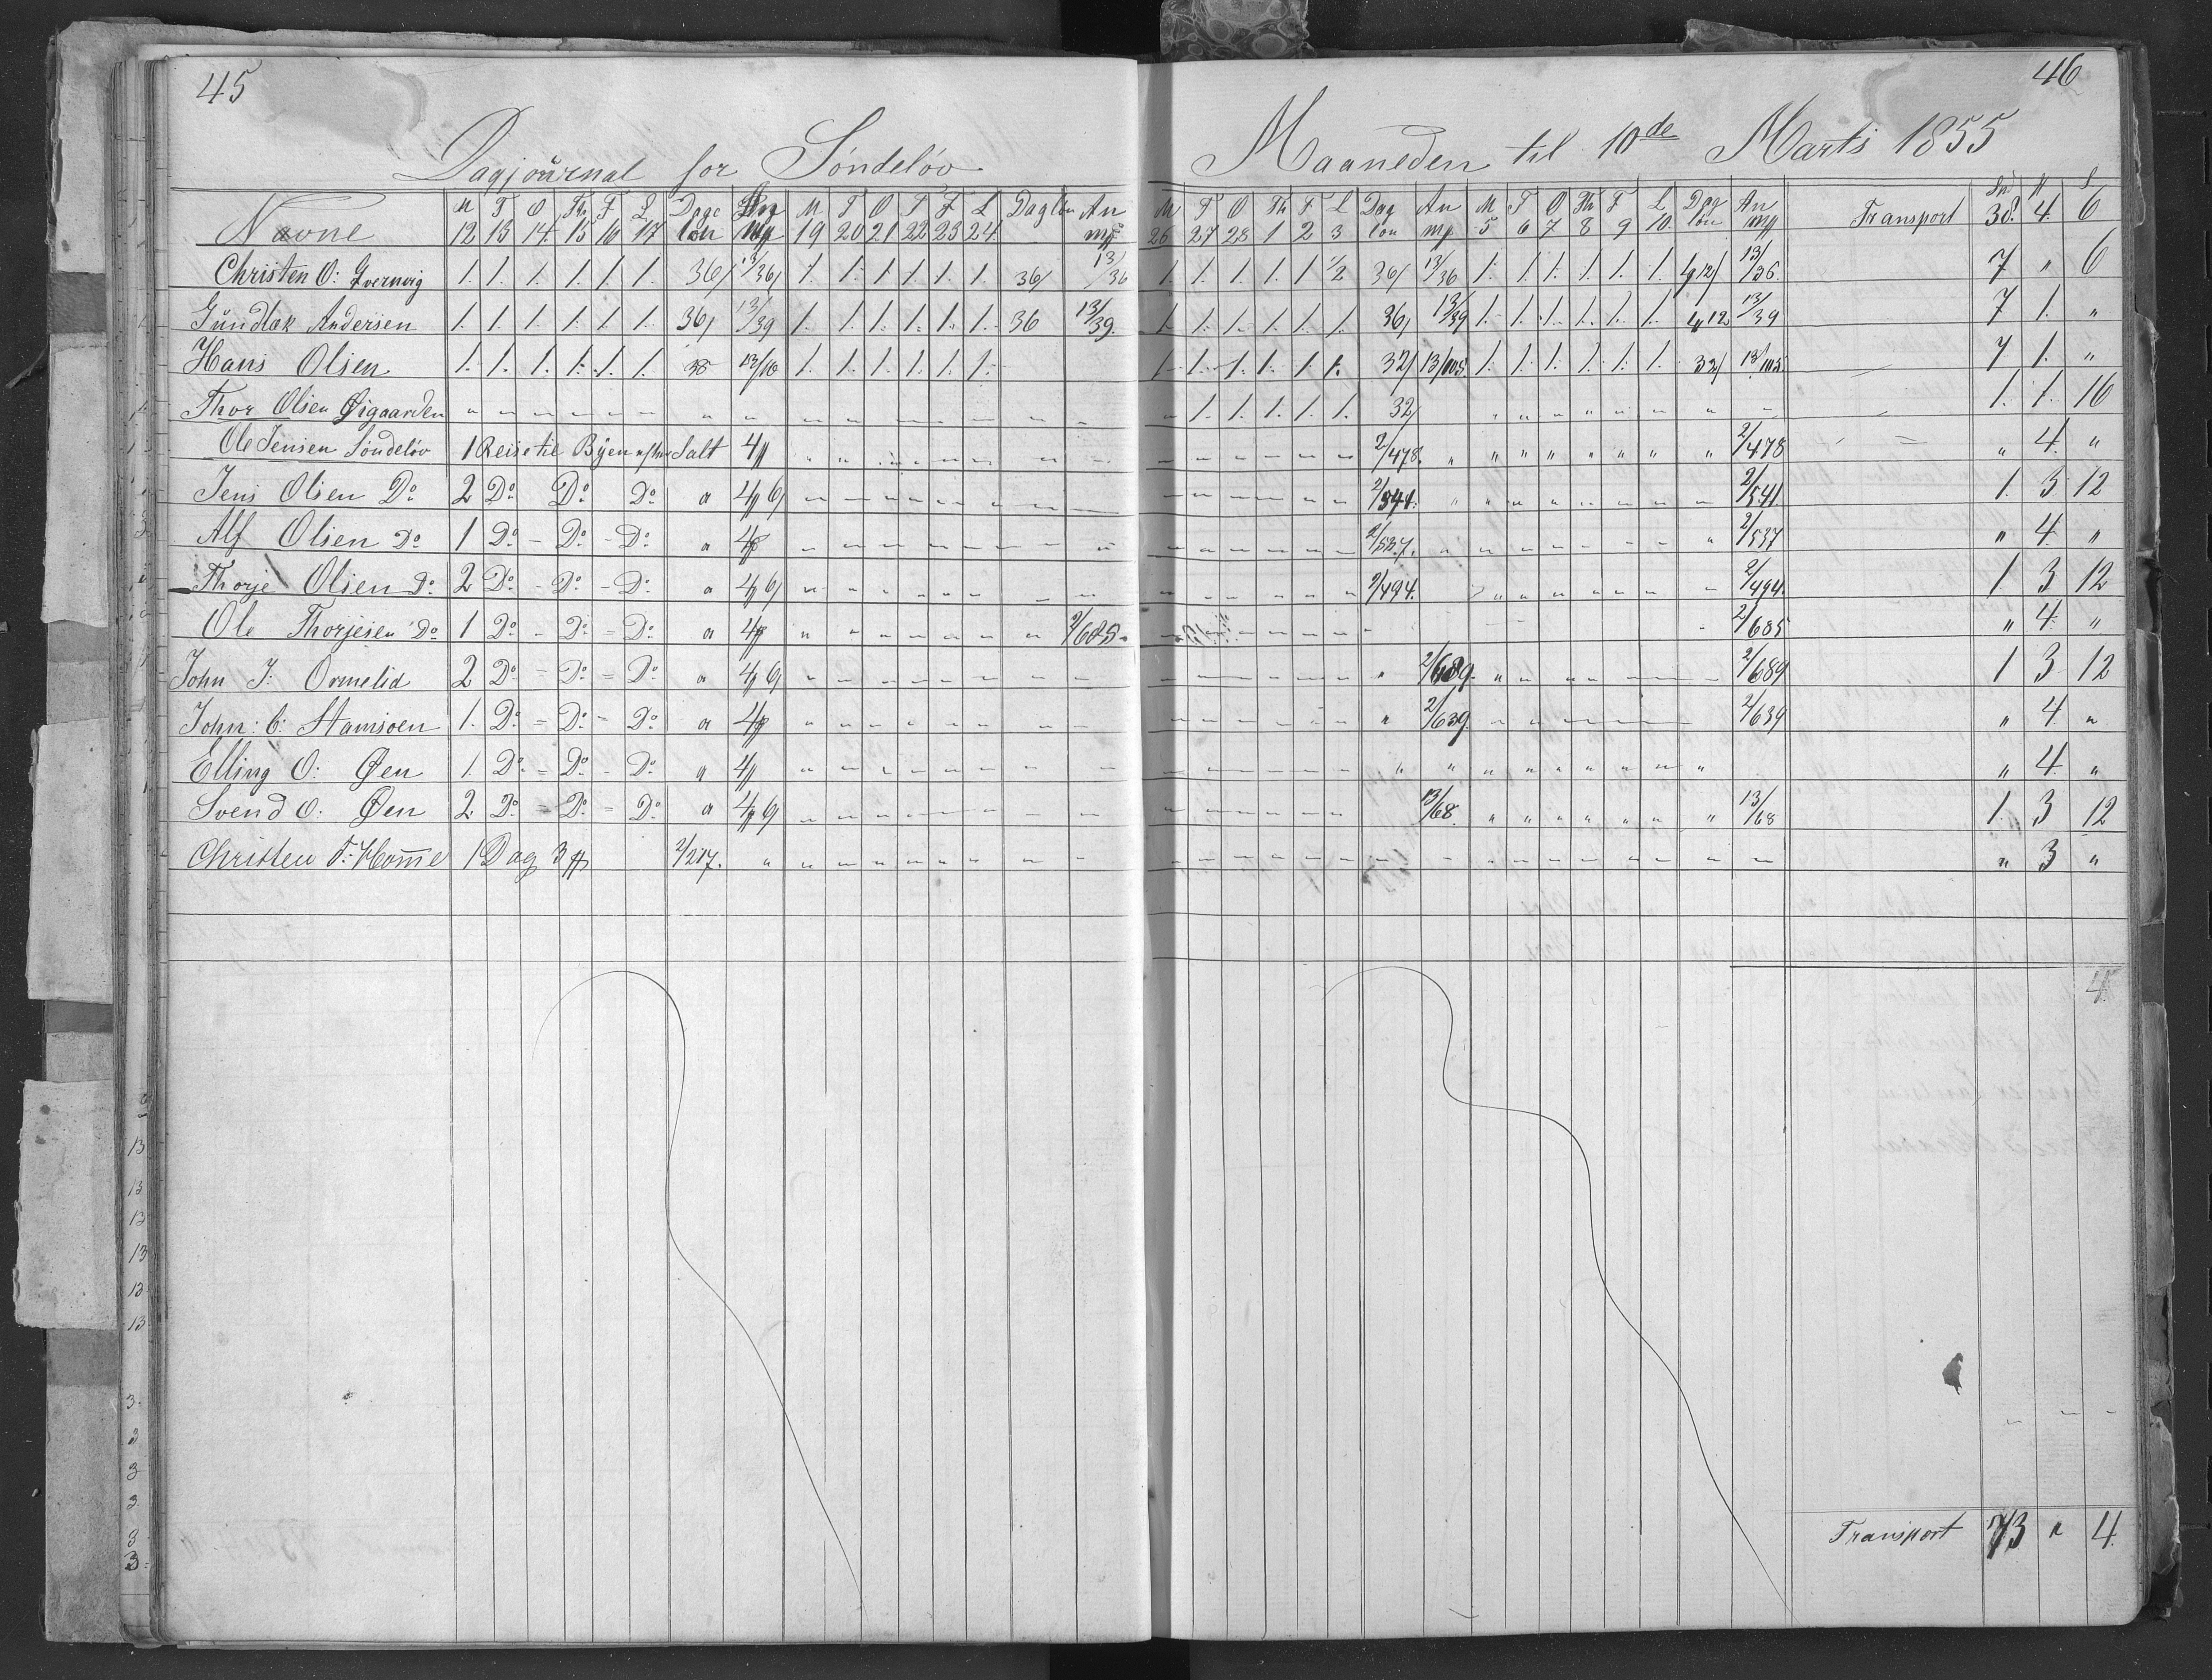 45
Dagjournal for Söndelöv
Navne M 12 T 13 O 14 Th 15 F 16 L 17 Dage lön An mp M 19 T 20 O 21 T 22 F 23 L 24 Daglön An mp
Christen O: 1. 1. 1. 1. 1. 1. 36/ 13/36/ 1. 1. 1. 1. 1. 1. 36/ 13/36
Gundlak Andersen 1. 1. 1. 1. 1. 1. 36/ 13/39 1. 1. 1. 1. 1. 1. 36 13/39
Hans Olsen 1. 1. 1. 1. 1. 1. 1. 1. 1. 1. 1. 1.
Thor Olsen Øigaarden " " " " " " " " " " " " " " " "
Ole Jensen Söndelöv 1 Reise til Byen efter Salt 4
Jens Olsen Do 2 Do Do Do a 4 6/
Alf Olsen Do 1 Do - Do - Do a 4
Thorje Olsen Do 2 Do - Do - Do a 4 6/
Ole Thorjesen Do 1 Do - Do = Do a 4 2/685
John J: Ormelid 2 Do - Do = Do a 4 6/
John: C: Stamsoen 1. Do = Do = Do a 4
Elling O: Øen 1. Do = Do - Do a 4
Svend O: Øen 2 Do = Do = Do a 4 6/
Christen T: Homme 1 Dag 3 2/217.
46
Maaneden til 10de Marts 1855
M 26 T 27 O 28 Th 1 F 2 L 3 Dag lön An mp M 5 T 6 O 7 Th 8 F 9 L 10 Dag lön An mp Transport 38. 4. 6
1. 1. 1. 1. 1 1/2 36/ 13/36 1. 1. 1. 1. 1. 1. 4 12/ 13/36. 7 " 6
1. 1. 1. 1. 1. 1. 36/ 13/39 1. 1. 1. 1. 1. 1. 4 12 13/39 7 1. "
1. 1. 1. 1. 1. 1. 32/ 13/105 1. 1. 1. 1. 1. 1. 32/ 13/105 7 1. "
" 1. 1. 1. 1. 1. 32/ 1. 1. 16
2/478. 2/478 " 4. "
2/541. 2/541. 1. 3 12
2/537. 2/537 " 4. "
2/494. 2/494. 1 3 12
2/685 " 4. "
2/689. 2/689 1 3 12
2/639. 2/639 " 4 "
" 4. "
13/68. 13/68 1. 3 12
" 3 "
4
Transport 73 " 4.